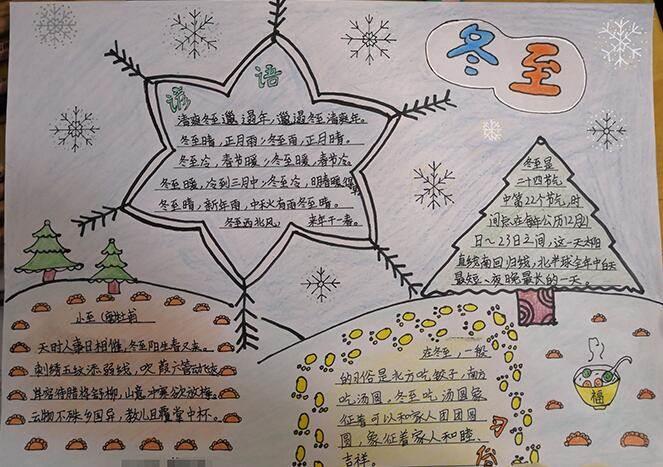 冬至
谚语
清爽冬至邋遢年,邋遢冬至清爽年。
冬至晴,正月雨;冬至雨,正月晴。
冬至冷,春节暖;冬至暖,春节冷。
冬至暖,冷到三月中;冬至冷,明春暖
冬至晴,新年雨,中秋有雨冬至晴。
冬至西北风,来年干一春。
冬至是
二十四节气
中第22个节气,时
间总在每年公历12月21
日~23日之间,这一天太阳
直线南回归线,北半球全年中白天
最短、夜晚最长的一天。
小至
天时人事日相催,冬至阳生春又来。
刺绣五纹添弱线,吹葭六管动飞灰
岸容待腊将舒柳,山意冲寒欲放梅。
云物不殊乡国异,教儿且覆掌中杯。
在冬至,一般
的习俗是北方吃饺子,南方
吃汤圆。冬至吃汤圆象
征着可以和家人团团圆
圆,象征着家人和睦、
吉祥。
习俗
福